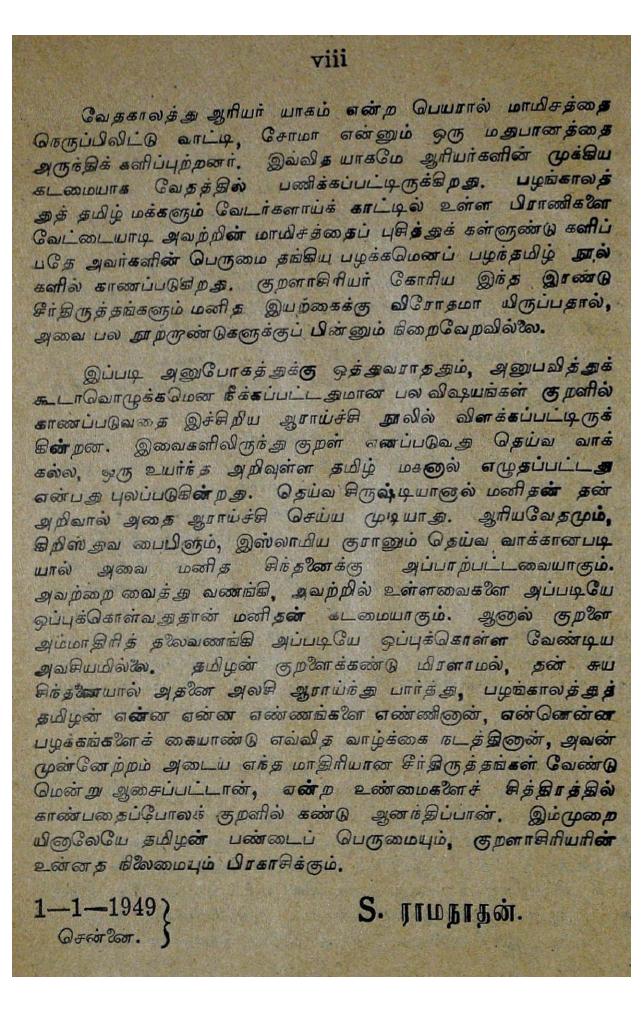 viii
வேதகாலத்து ஆரியர் யாகம் என்ற பெயரால் மாமிசத்தை
நெருப்பிலிட்டு வாட்டி, சோமா என்னும் ஒரு மதுபானத்தை
அருந்திக் களிப்புற்றனர். இவ்வித யாகமே ஆரியர்களின் முக்கிய
கடமையாக வேதத்தில் பணிக்கப்பட்டிருக்கிறது. பழங்காலத்
துத் தமிழ் மக்களும் வேடர்களாய்க் காட்டில் உள்ள பிராணிகளை
வேட்டையாடி அவற்றின் மாமிசத்தைப் புசித்துக் கள்ளுண்டு களிப்
பதே அவர்களின் பெருமை தங்கிய பழக்கமெனப் பழந்தமிழ் நூல்
களில் காணப்படுகிறது. குறளாசிரியர் கோரிய இந்த இரண்டு
சீர்திருத்தங்களும் மனித இயற்கைக்கு விரோதமா யிருப்பதால்,
அவை பல நூற்றாண்டுகளுக்குப் பின்னும் நிறைவேறவில்லை.
இப்படி அனுபோகத்துக்கு ஒத்துவராததும், அனுபவித்துக்
கூடாவொழுக்கமென நீக்கப்பட்டதுமான பல விஷயங்கள் குறளில்
காணப்படுவதை இச்சிறிய ஆராய்ச்சி நூலில் விளக்கப்பட்டிருக்
கின்றன. இவைகளிலிருந்து குறள் எனப்படுவது தெய்வ வாக்
கல்ல, ஒரு உயர்ந்த அறிவுள்ள தமிழ் மகனால் எழுதப்பட்டது
என்பது புலப்படுகின்றது. தெய்வ சிருஷ்டியானால் மனிதன் தன்
அறிவால் அதை ஆராய்ச்சி செய்ய முடியாது. ஆரியவேதமும்,
கிறிஸ்துவ பைபிளும், இஸ்லாமிய குரானும் தெய்வ வாக்கானபடி
யால் அவை மனித சிந்தனைக்கு அப்பாற்பட்டவையாகும்.
அவற்றை வைத்து வணங்கி, அவற்றில் உள்ளவைகளை அப்படியே
ஒப்புக்கொள்வதுதான் மனிதன் கடமையாகும். ஆனால் குறளை
அம்மாதிரித் தலைவணங்கி அப்படியே ஒப்புக்கொள்ள வேண்டிய
அவசியமில்லை. தமிழன் குறளைக்கண்டு மிரளாமல், தன் சுய
சிந்தனையால் அதனை அலசி ஆராய்ந்து பார்த்து, பழங்காலத்துத்
தமிழன் என்ன ஏன்ன எண்ணங்களை எண்ணினான், என்னென்ன
பழக்கங்களைக் கையாண்டு எவ்வித வாழ்க்கை நடத்தினான், அவன்
முன்னேற்றம் அடைய எந்த மாதிரியான சீர்திருத்தங்கள் வேண்டு
மென்று ஆசைப்பட்டான், என்ற உண்மைகளைச் சித்திரத்தில்
காண்பதைப்போலக் குறளில் கண்டு ஆனந்திப்பான். இம்முறை
யினாலேயே தமிழன் பண்டைப் பெருமையும், குறளாசிரியரின்
உன்னத நிலைமையும் பிரகாசிக்கும்.
1—1—1949 } S. ராமநாதன்.
சென்னை.